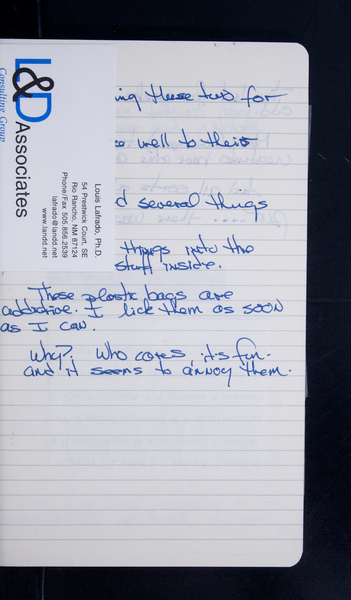 L&D Associates
Consulting Group
Louis Lafrado, Ph.D.
54 Prestwick Court, SE
Rio Rancho, NM 87124
Phone/Fax 505.856.2539
lafrado@landd.net
www.landd.net
ing these two for
well to their
d several things
things into the
stuff inside.
These plastic bags are
addictive. I lick them as soon
as I can.
Why? Who cares, it's fun.
and it seems to annoy them.